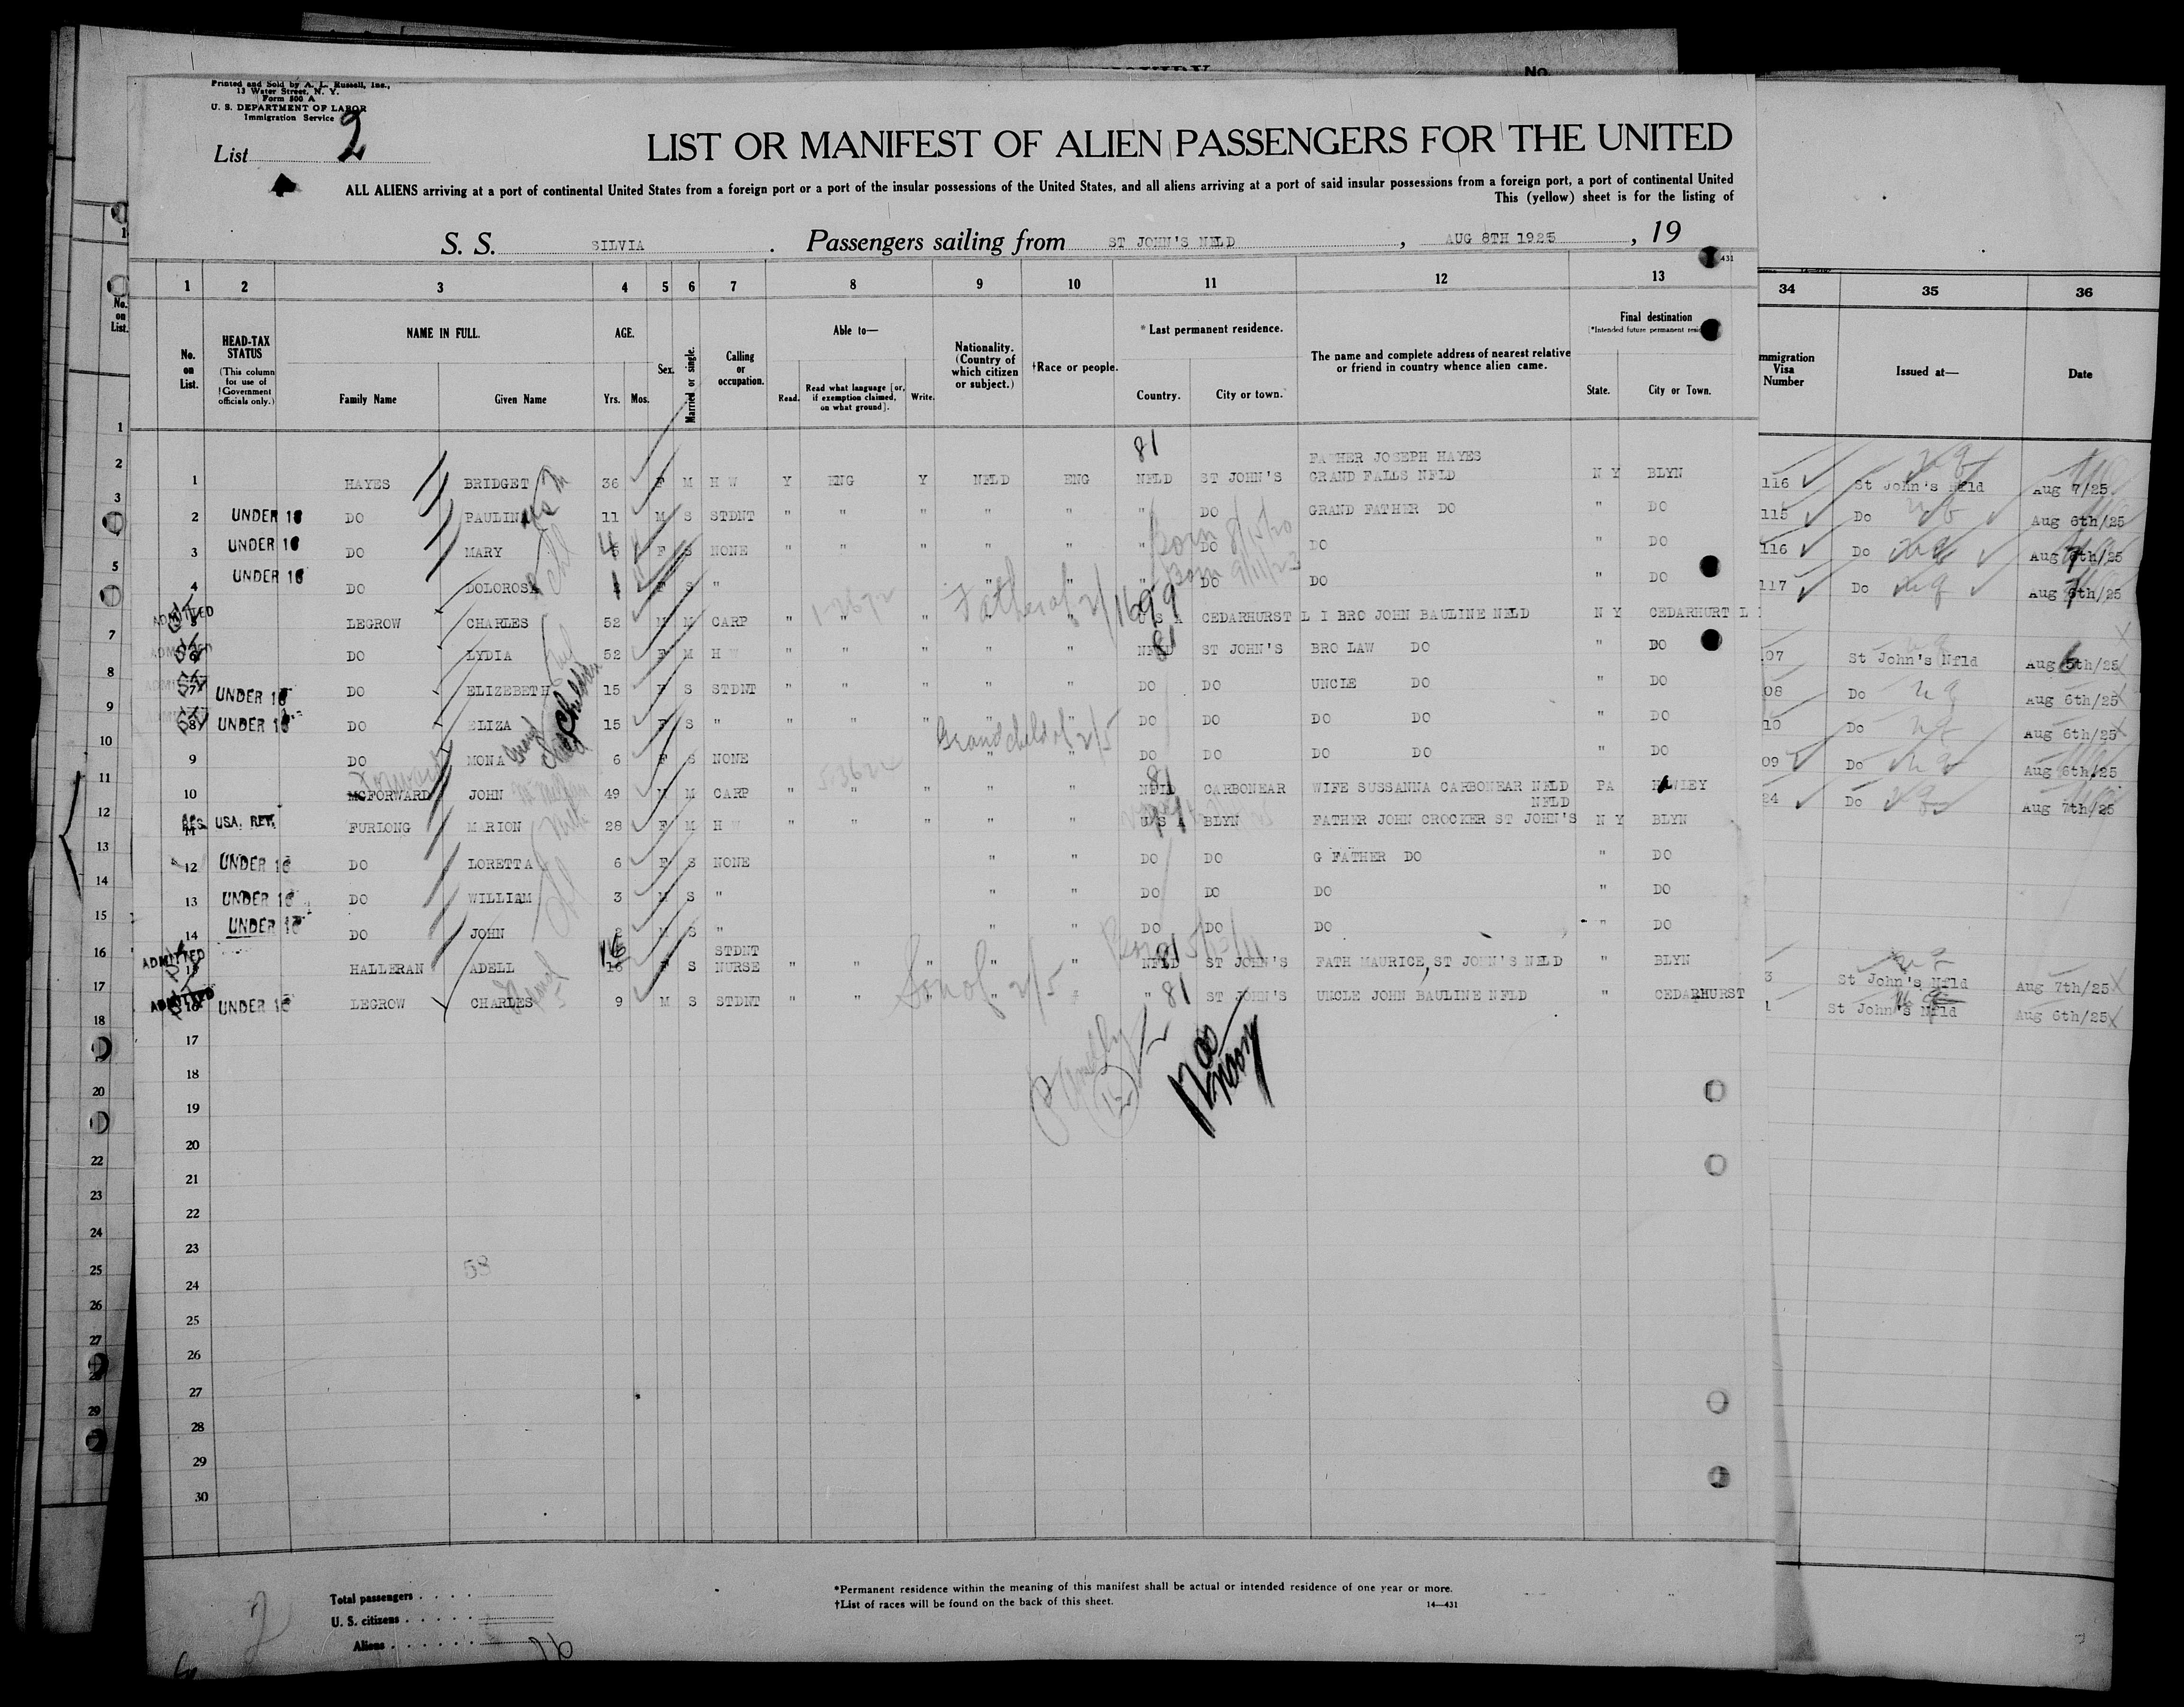 Printed and Sold by A. L. Russell, Inc.,
13 Water Street, N. Y.
Form 500 A
U. S. DEPARTMENT OF LABOR
Immigration Service
No.
List 2
LIST OR MANIFEST OF ALIEN PASSENGERS FOR THE UNITED
ALL ALIENS arriving at a port of continental United States from a foreign port or a port of the insular possessions of the United States, and all aliens arriving at a port of said insular possessions from a foreign port, a port of continental United
This (yellow) sheet is for the listing of
S. S. SILVIA. Passengers sailing from ST JOHN'S NFLD, AUG 8TH 1925, 19
1 2 3 4 5 6 7 8 9 10 11 12 13 34 35 36
No. on List.
HEAD-TAX STATUS
(This column for use of Government officials only.)
NAME IN FULL.
Family Name Given Name
AGE.
Yrs. Mos.
Sex.
Married or single.
Calling or occupation.
Able to—
Read. Read what language [or, if exemption claimed, on what ground]. Write.
Nationality. (Country of which citizen or subject.)
†Race or people.
*Last permanent residence.
Country. City or town.
The name and complete address of nearest relative or friend in country whence alien came.
Final destination
State. City or Town.
mmigration Visa Number
Issued at—
Date
81
FATHER JOSEPH HAYES
1 HAYES BRIDGET 36 F M H W Y ENG Y NFLD ENG NFLD ST JOHN'S GRAND FALLS NFLD N Y BLYN 116 St John's Nfld Aug 7/25
2 UNDER 16 DO PAULIN 11 M S STDNT " " " " " " DO GRAND FATHER DO " DO 115 Do Aug 6th/25
Born 8/15/20
3 UNDER 16 DO MARY 4 F S NONE " " " " " " DO DO " DO 116 Do Aug 7th/25
Born 9/11/23
4 UNDER 16 DO DOLOROSA 1 F S " " " " DO DO " DO 117 Do Aug 7th/25
Father of 2/16 99
ADMITTED 5 LEGROW CHARLES 52 M M CARP " " " " U S A CEDARHURST L I BRO JOHN BAULINE NFLD N Y CEDARHURT L
81
ADMITTED 6 DO LYDIA 52 F M H W " " " " " NFLD ST JOHN'S BRO LAW DO " DO 07 St John's Nfld Aug 6th/25
7 UNDER 16 DO ELIZEBETH 15 F S STDNT " " " " " DO DO UNCLE DO " DO 08 Do Aug 6th/25
8 UNDER 16 DO ELIZA 15 F S " " " " " " DO DO DO DO " DO 10 Do Aug 6th/25
Grandchild of 2/5
9 DO MONA 6 F S NONE " " DO DO DO DO " DO 09 Do Aug 6th/25
81
10 MCFORWARD JOHN 49 M M CARP " " " " " NFLD CARBONEAR WIFE SUSSANNA CARBONEAR NFLD PA HAWLEY 24 Do Aug 7th/25
NFLD
11 USA. RET. FURLONG MARION 28 F M H W " " " " " U S A BLYN FATHER JOHN CROCKER ST JOHN'S N Y BLYN
12 UNDER 16 DO LORETTA 6 F S NONE " " DO DO G FATHER DO " DO
13 UNDER 16 DO WILLIAM 3 M S " " " DO DO DO " DO
14 UNDER 16 DO JOHN 2 M S " " " DO DO DO " DO
STDNT
ADMITTED 15 HALLERAN ADELL 16 F S NURSE " " " " " NFLD ST JOHN'S FATH MAURICE, ST JOHN'S NFLD " BLYN 3 St John's Nfld Aug 7th/25
Son of 2/5
81
ADMITTED 16 UNDER 16 LEGROW CHARLES 9 M S STDNT " " " " " " ST JOHN'S UNCLE JOHN BAULINE NFLD " CEDARHURST 1 St John's Nfld Aug 6th/25
17
18
19
20
21
22
23
58
24
25
26
27
28
29
30
Total passengers
U. S. citizens
Aliens 16
2
*Permanent residence within the meaning of this manifest shall be actual or intended residence of one year or more.
†List of races will be found on the back of this sheet. 14—431